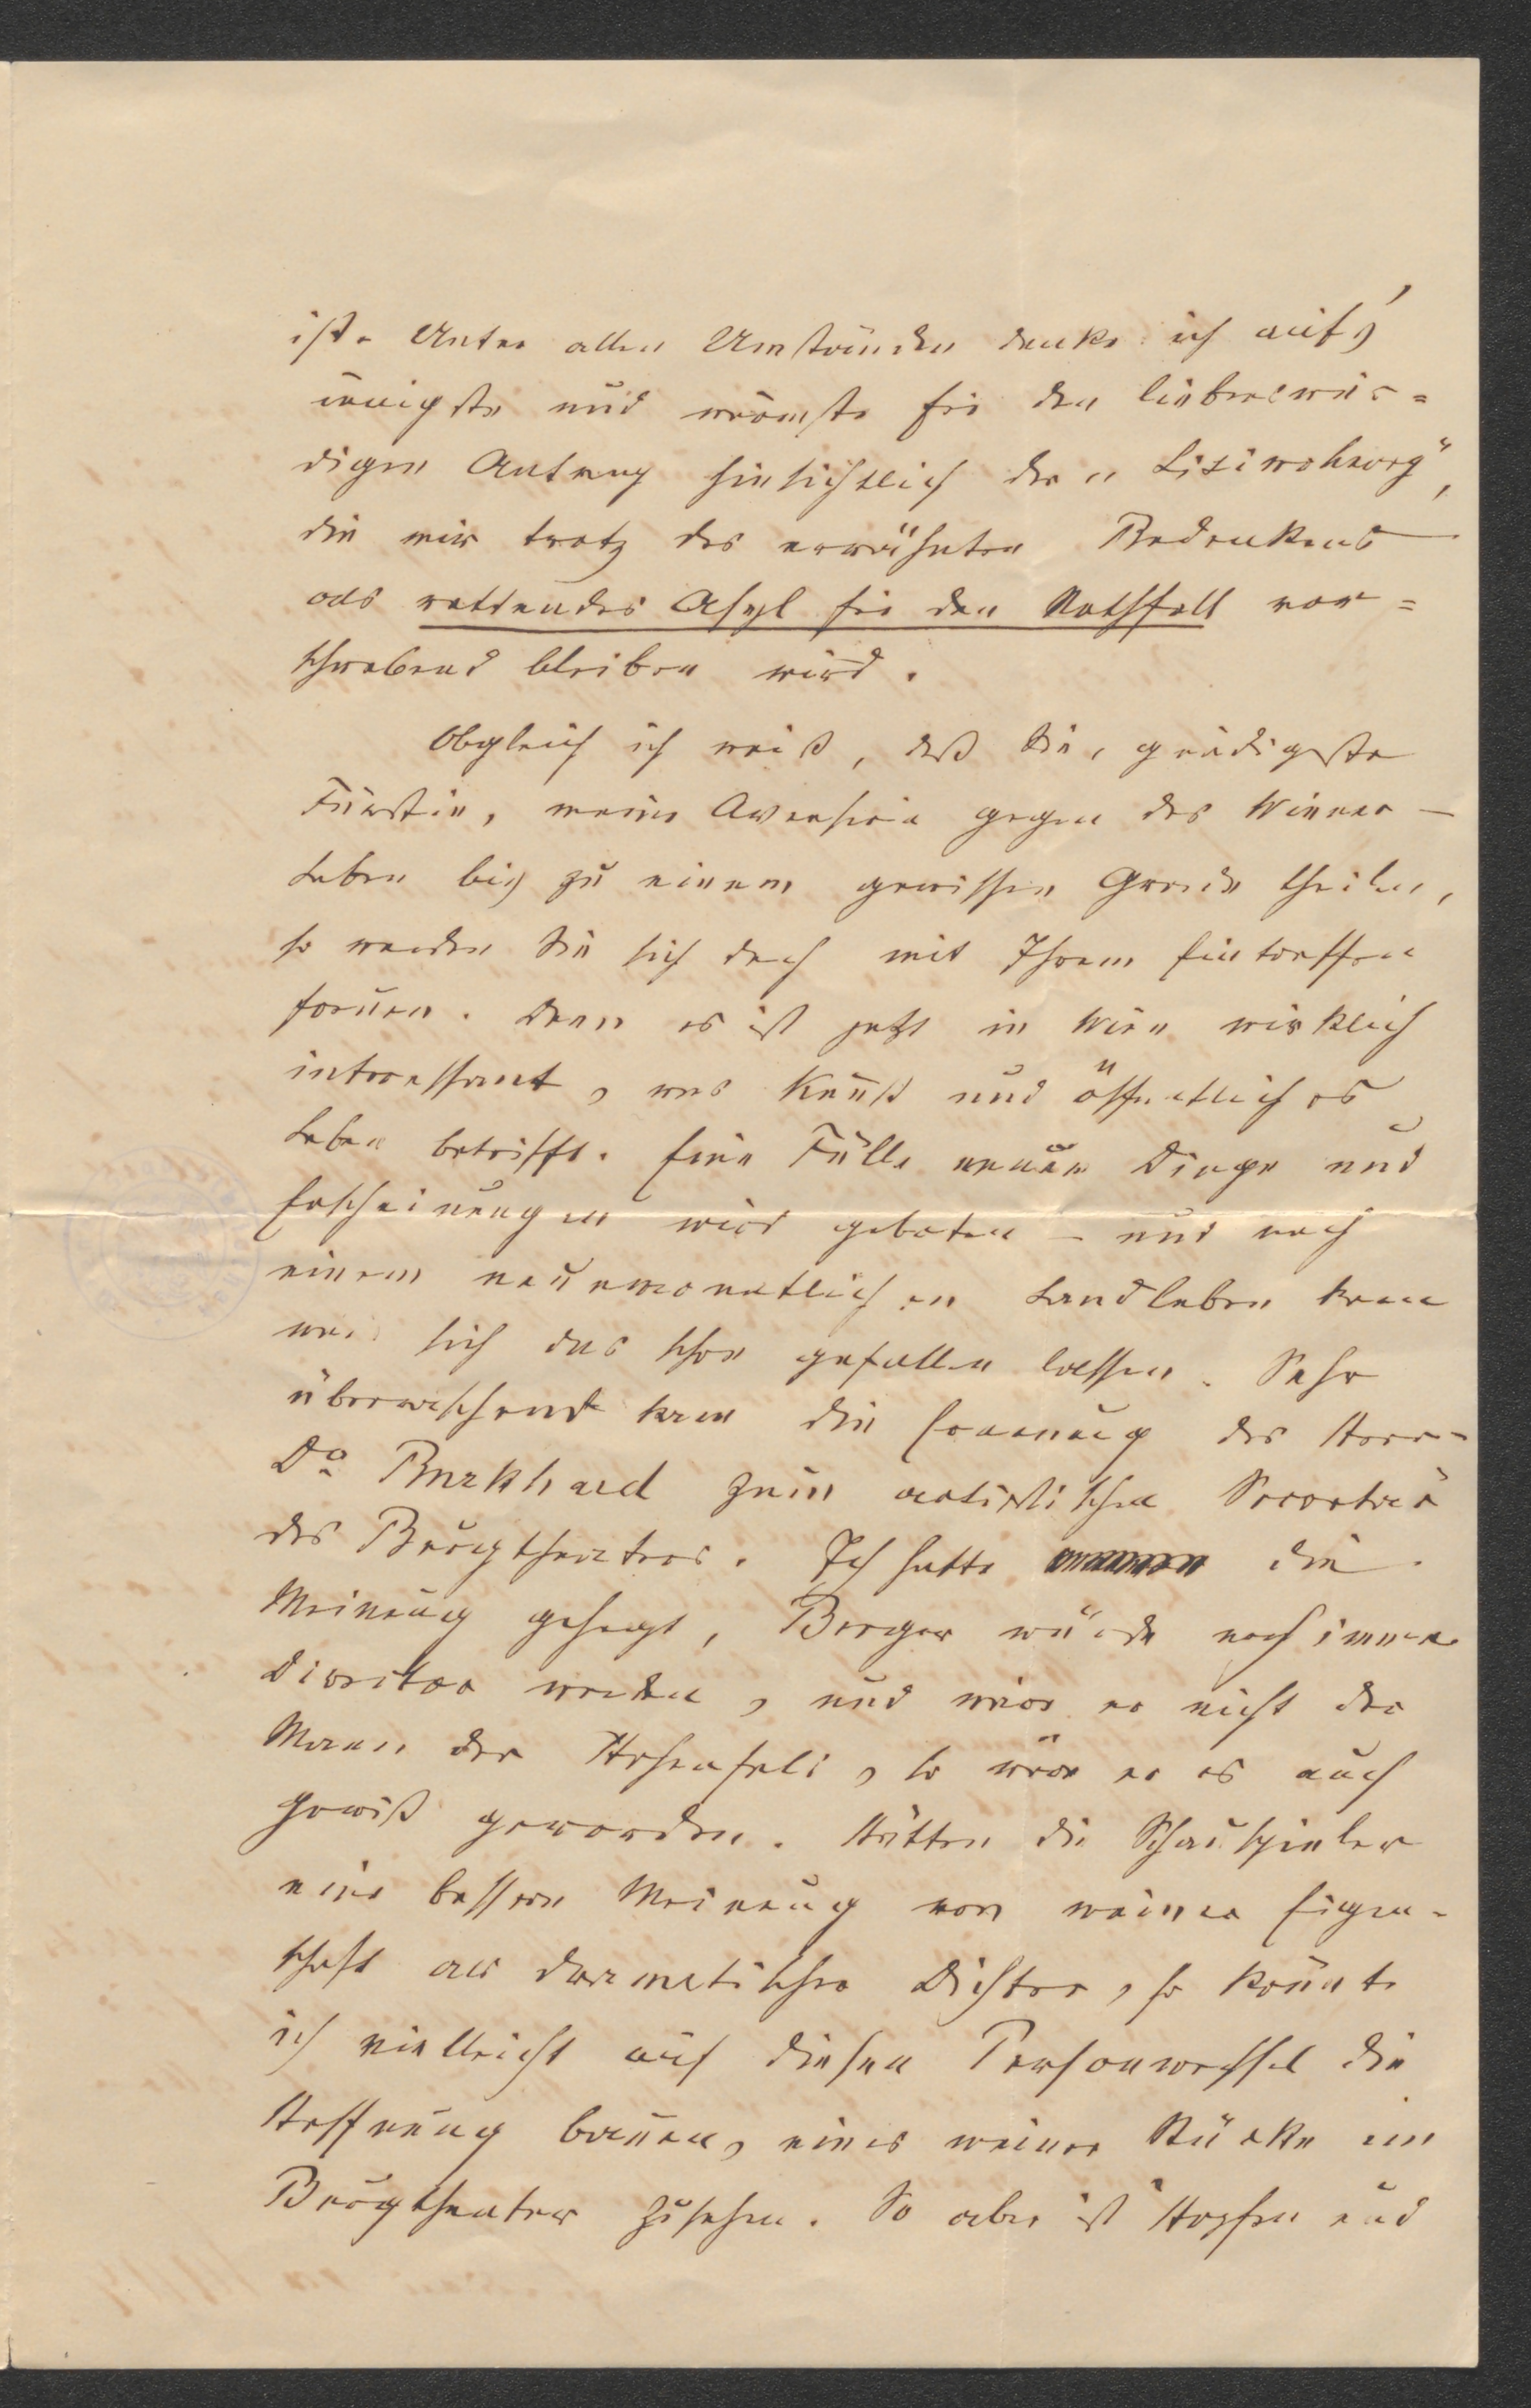 ist. Unter allen Umständen danke ich auf's
innigste und wärmste für den liebenswür=
digen Antrag hinsichtlich der „Lisiwohnung“,
die mir trotz des erwähnten Bedenkens
als rettendes Asyl für den Nothfall vor=
schwebend bleiben wird.
Obgleich ich weiß, daß Sie, gnädigste
Fürstin, meine Aversion gegen das Wiener–
Leben bis zu einem gewissen Grade theilen,
so werden Sie sich doch mit Ihrem Eintreffen
freuen. Denn es ist jetzt in Wien wirklich
interessant, was Kunst und öffentliches
Leben betrifft. Eine Fülle neuer Dinge und
Erscheinungen wird geboten – und nach
einem neunmonatlichen Landleben kann
man sich das schon gefallen lassen. Sehr
überraschend kam die Ernennung des Herrn
Dr Burkhard zum artistischen Secretär
des Burgtheaters. Ich hatte die
Meinung gehegt, Berger würde noch immer
Director werden, und wäre er nicht der
Mann der Hohenfels, so wäre er es auch
gewiß geworden. Hätten die Schauspieler
eine bessere Meinung von meiner Eigen-
schaft als dramatischer Dichter, so könnte
ich vielleicht auf diesen Personwechsel die
Hoffnung bauen, eines meiner Stücke im
Burgtheater zusehen. So aber ist Hopfen und